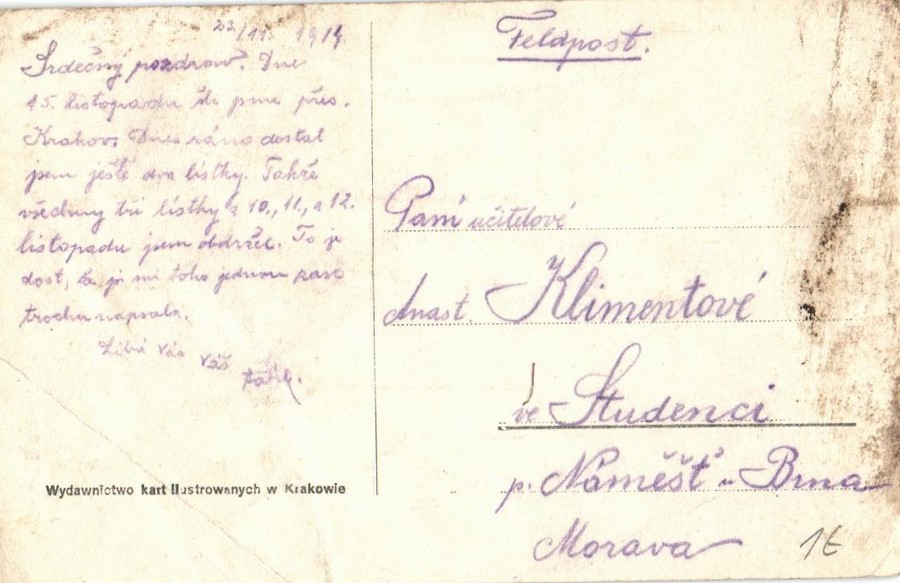 23/11. 1914.
Srdečný pozdrav. Dne
15. listopadu šli jsme přes
Krakov. Dnes ráno dostal
jsem ještě dva lístky. Takže
všechny tři lístky z 10., 11., a 12.
listopadu jsem obdržel. To je
dost, že jsi mi toho jednou zase
trochu napsala.
Líbá Vás Váš
Feldpost.
Paní učitelové
Anast. Klimentové
ve Studenci
p. Náměšť u Brna
Morava
1€
Wydawnictwo kart Ilustrowanych w Krakowie